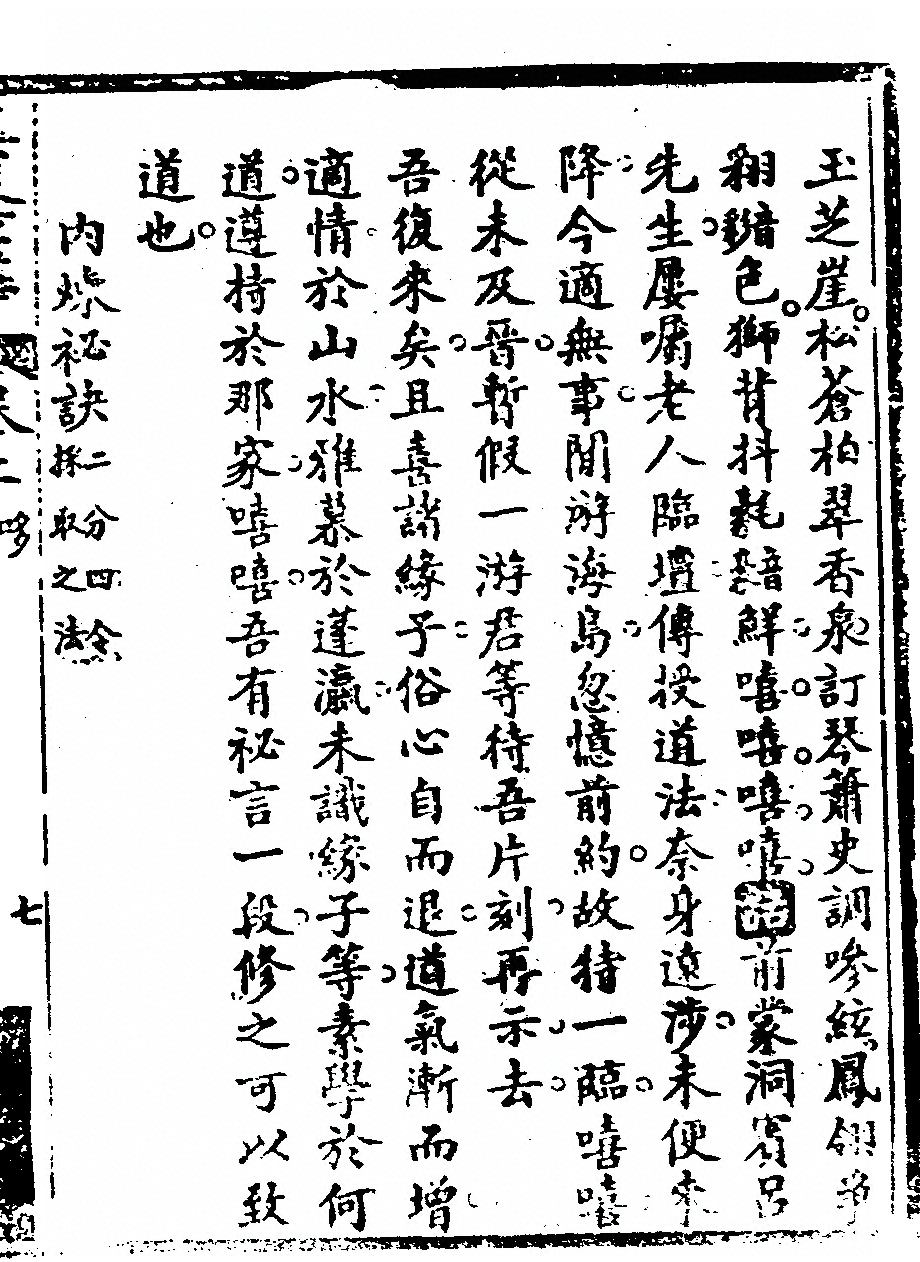 玉芝崖松蒼柏翠香泉訂琴簫史調嘇絃鳳翎爭
翱色獅背抖毿鮮嘻嘻嘻嘻前蒙洞賓呂
先生屢囑老人臨壇傳授道法奈身遠涉未便來
降今適無事閒游海島忽憶前約故特一臨嘻嘻
從未及晉暫假一游君等待吾片刻再示去
吾復來矣且喜諸緣子俗心自而退道氣漸而增
適情於山水雅慕於蓬瀛未識緣子等素學於何
道遵持於那家嘻嘻吾有祕言一段修之可以致
道也
內煉祕訣二分四令採取之法
卷二
七